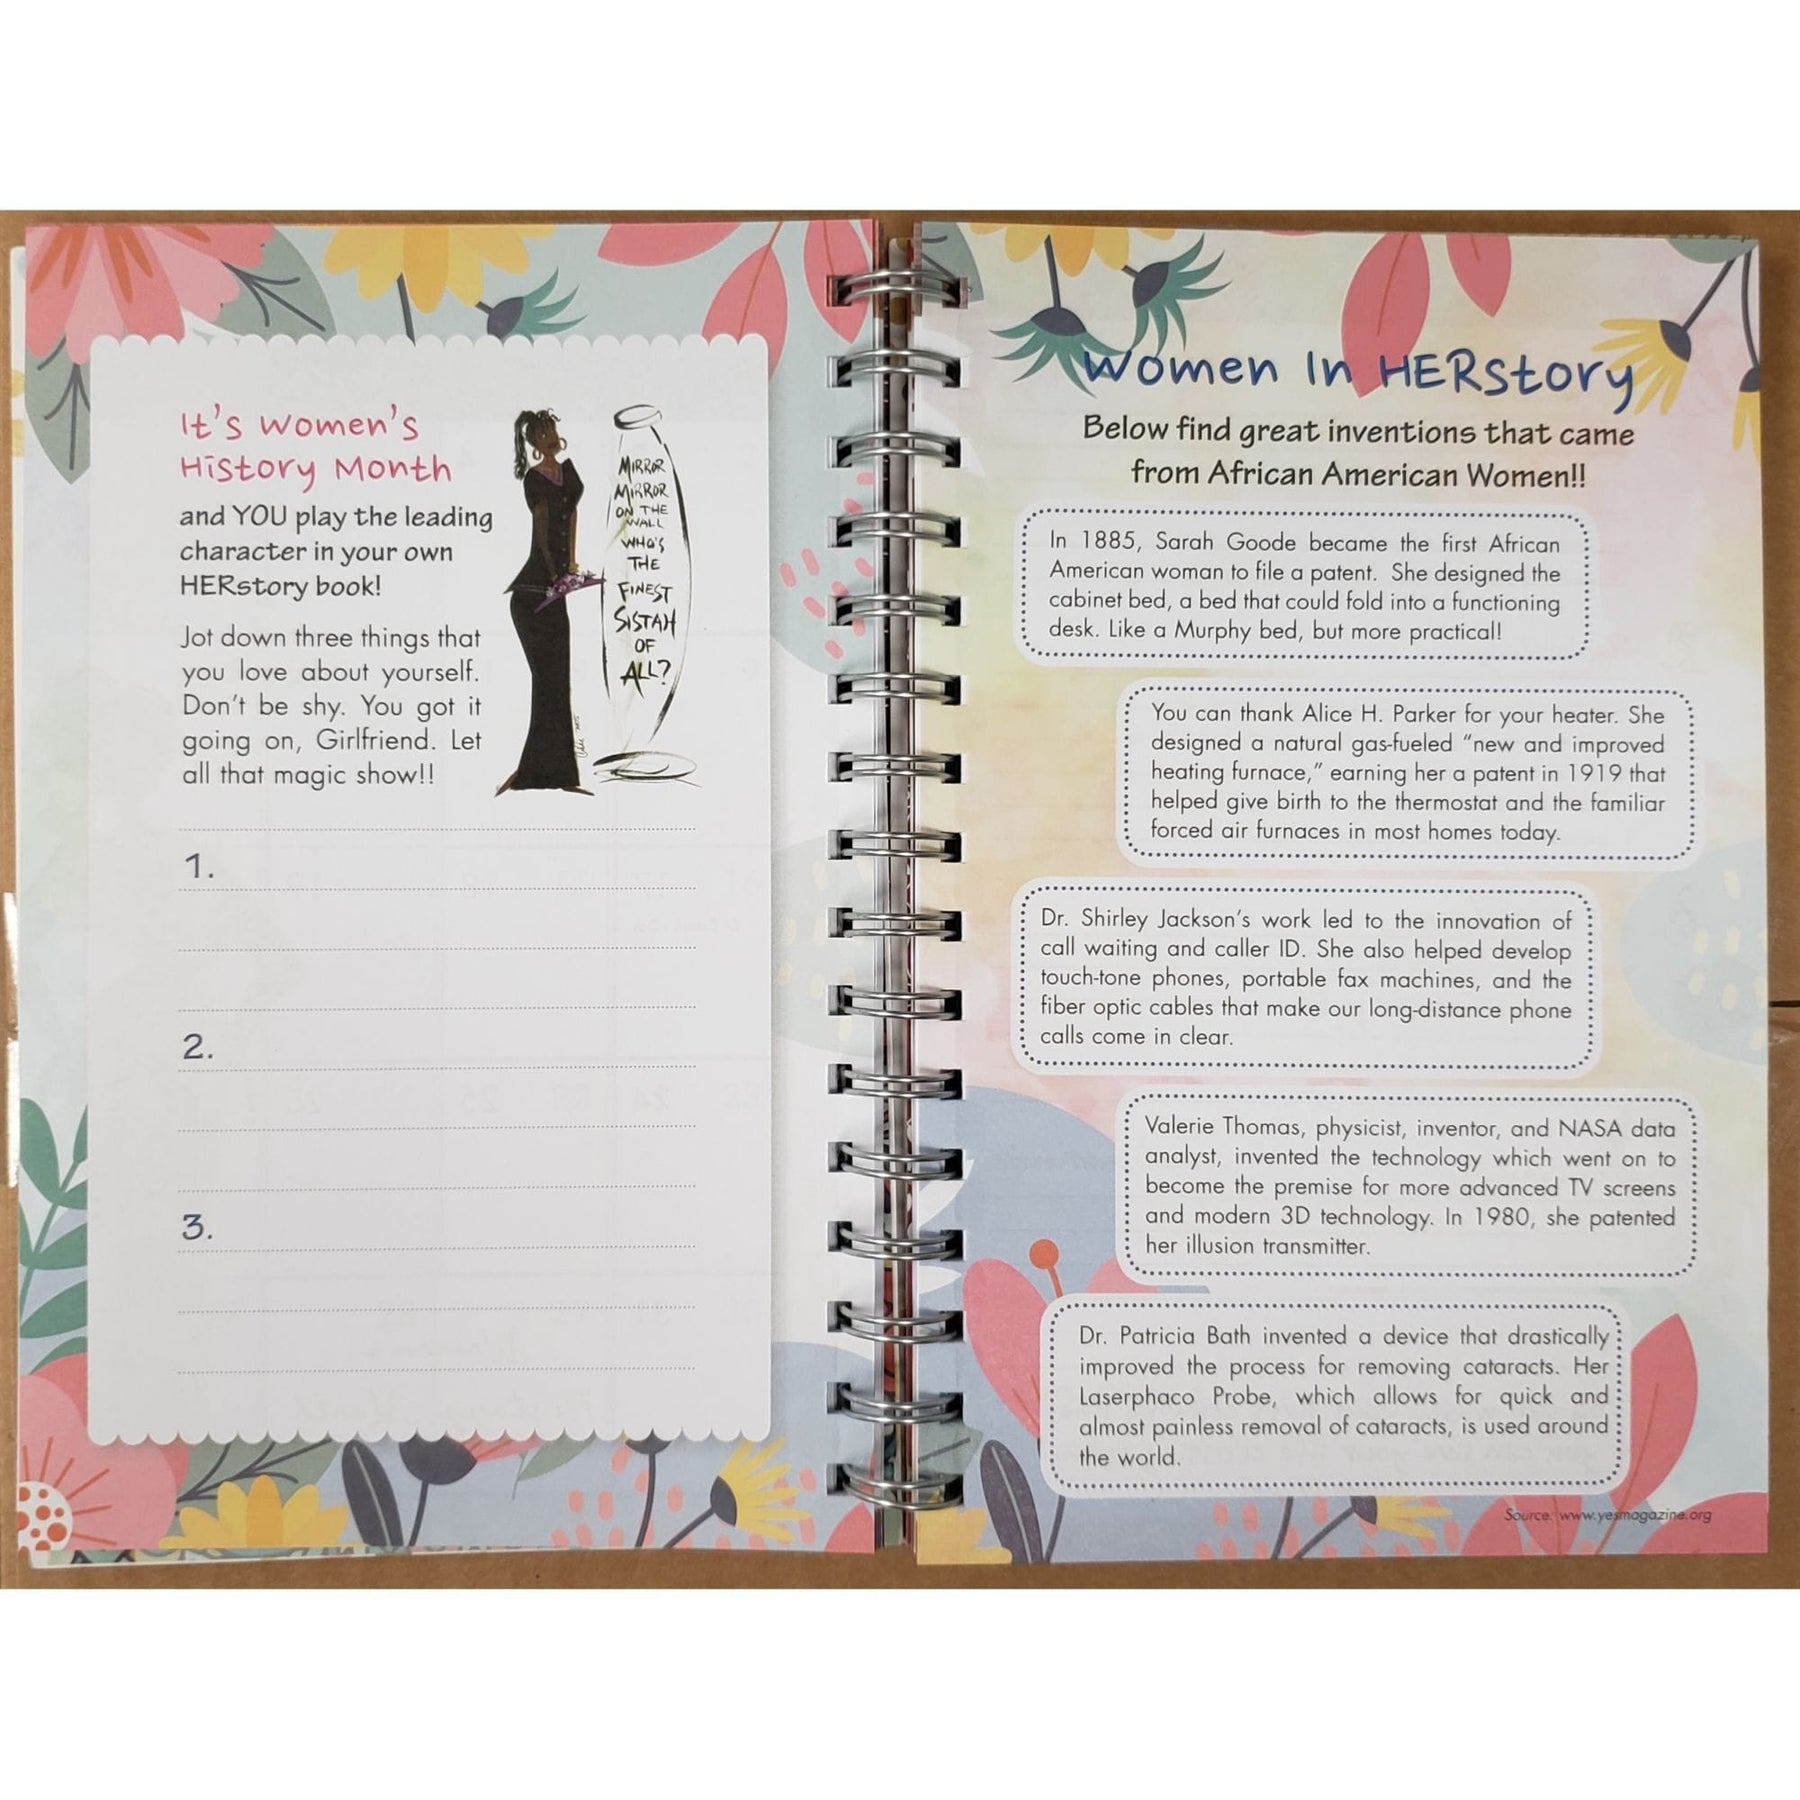 It's Women's
History Month
and YOU play the leading
character in your own
HERstory book!
Jot down three things that
you love about yourself.
Don't be shy. You got it
going on, Girlfriend. Let
all that magic show!!
MIRROR
MIRROR
ON THE
WALL
WHO'S
THE
FINEST
SISTAH
OF
ALL?
1.
2.
3.
Women In HERstory
Below find great inventions that came
from African American Women!!
In 1885, Sarah Goode became the first African
American woman to file a patent. She designed the
cabinet bed, a bed that could fold into a functioning
desk. Like a Murphy bed, but more practical!
You can thank Alice H. Parker for your heater. She
designed a natural gas-fueled “new and improved
heating furnace,” earning her a patent in 1919 that
helped give birth to the thermostat and the familiar
forced air furnaces in most homes today.
Dr. Shirley Jackson's work led to the innovation of
call waiting and caller ID. She also helped develop
touch-tone phones, portable fax machines, and the
fiber optic cables that make our long-distance phone
calls come in clear.
Valerie Thomas, physicist, inventor, and NASA data
analyst, invented the technology which went on to
become the premise for more advanced TV screens
and modern 3D technology. In 1980, she patented
her illusion transmitter.
Dr. Patricia Bath invented a device that drastically
improved the process for removing cataracts. Her
Laserphaco Probe, which allows for quick and
almost painless removal of cataracts, is used around
the world.
Source: www.yesmagazine.org